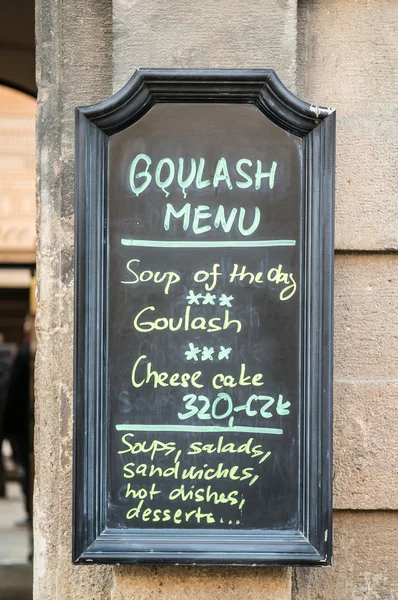 GOULASH
MENU
Soup of the day
***
Goulash
***
Cheese cake
320,-CZK
Soups, salads,
sandwiches,
hot dishes,
desserts...